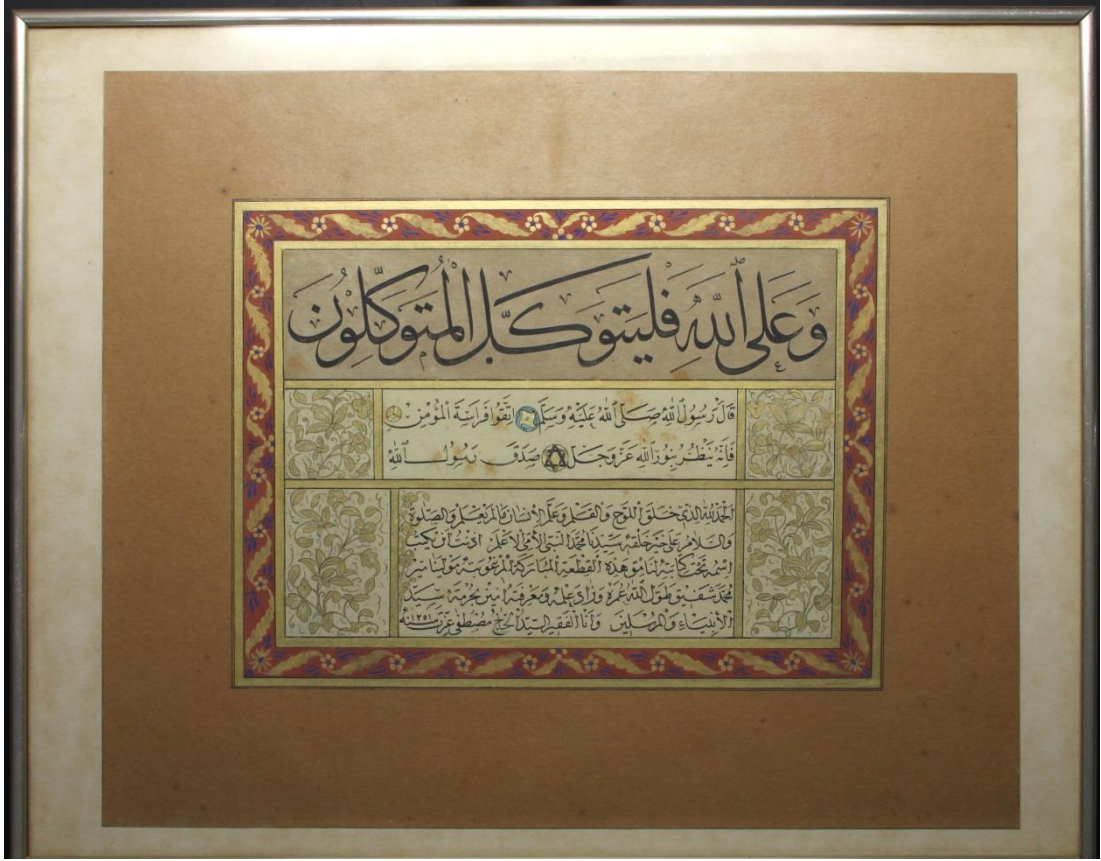 وَعَلَى ٱللَّهِ فَلْيَتَوَكَّلِ الْمُتَوَكِّلُونَ
قَالَ رَسُولُ اللّٰهِ صَلَّى اللّٰهُ عَلَيْهِ وَسَلَّمَ اتَّقُوا فَرَاسَةَ الْمُؤْمِنِ
فَاِنَّهُ يَنْظُرُ بِنُورِ اللّٰهِ عَزَّ وَجَلَّ صَدَقَ رَسُولُ اللّٰهِ
الحمد لله الذي خلق اللوح والقلم وعلم الانسان مالم يعلم والصلوة
والسلام على خير خلقه سيدنا محمد النبى الأمى الاعلم اذنت ان يكتب
اسمه تحت كتابة لنامق هذه القطعة المباركة المرغوبة مولينا
محمد شفيق طول الله عمره وزاد علمه ومعرفته امين بحرمة سيد
الأنبياء والمرسلين وانا الفقير السيد الحاج مصطفى عزت سنه ١٢٥١